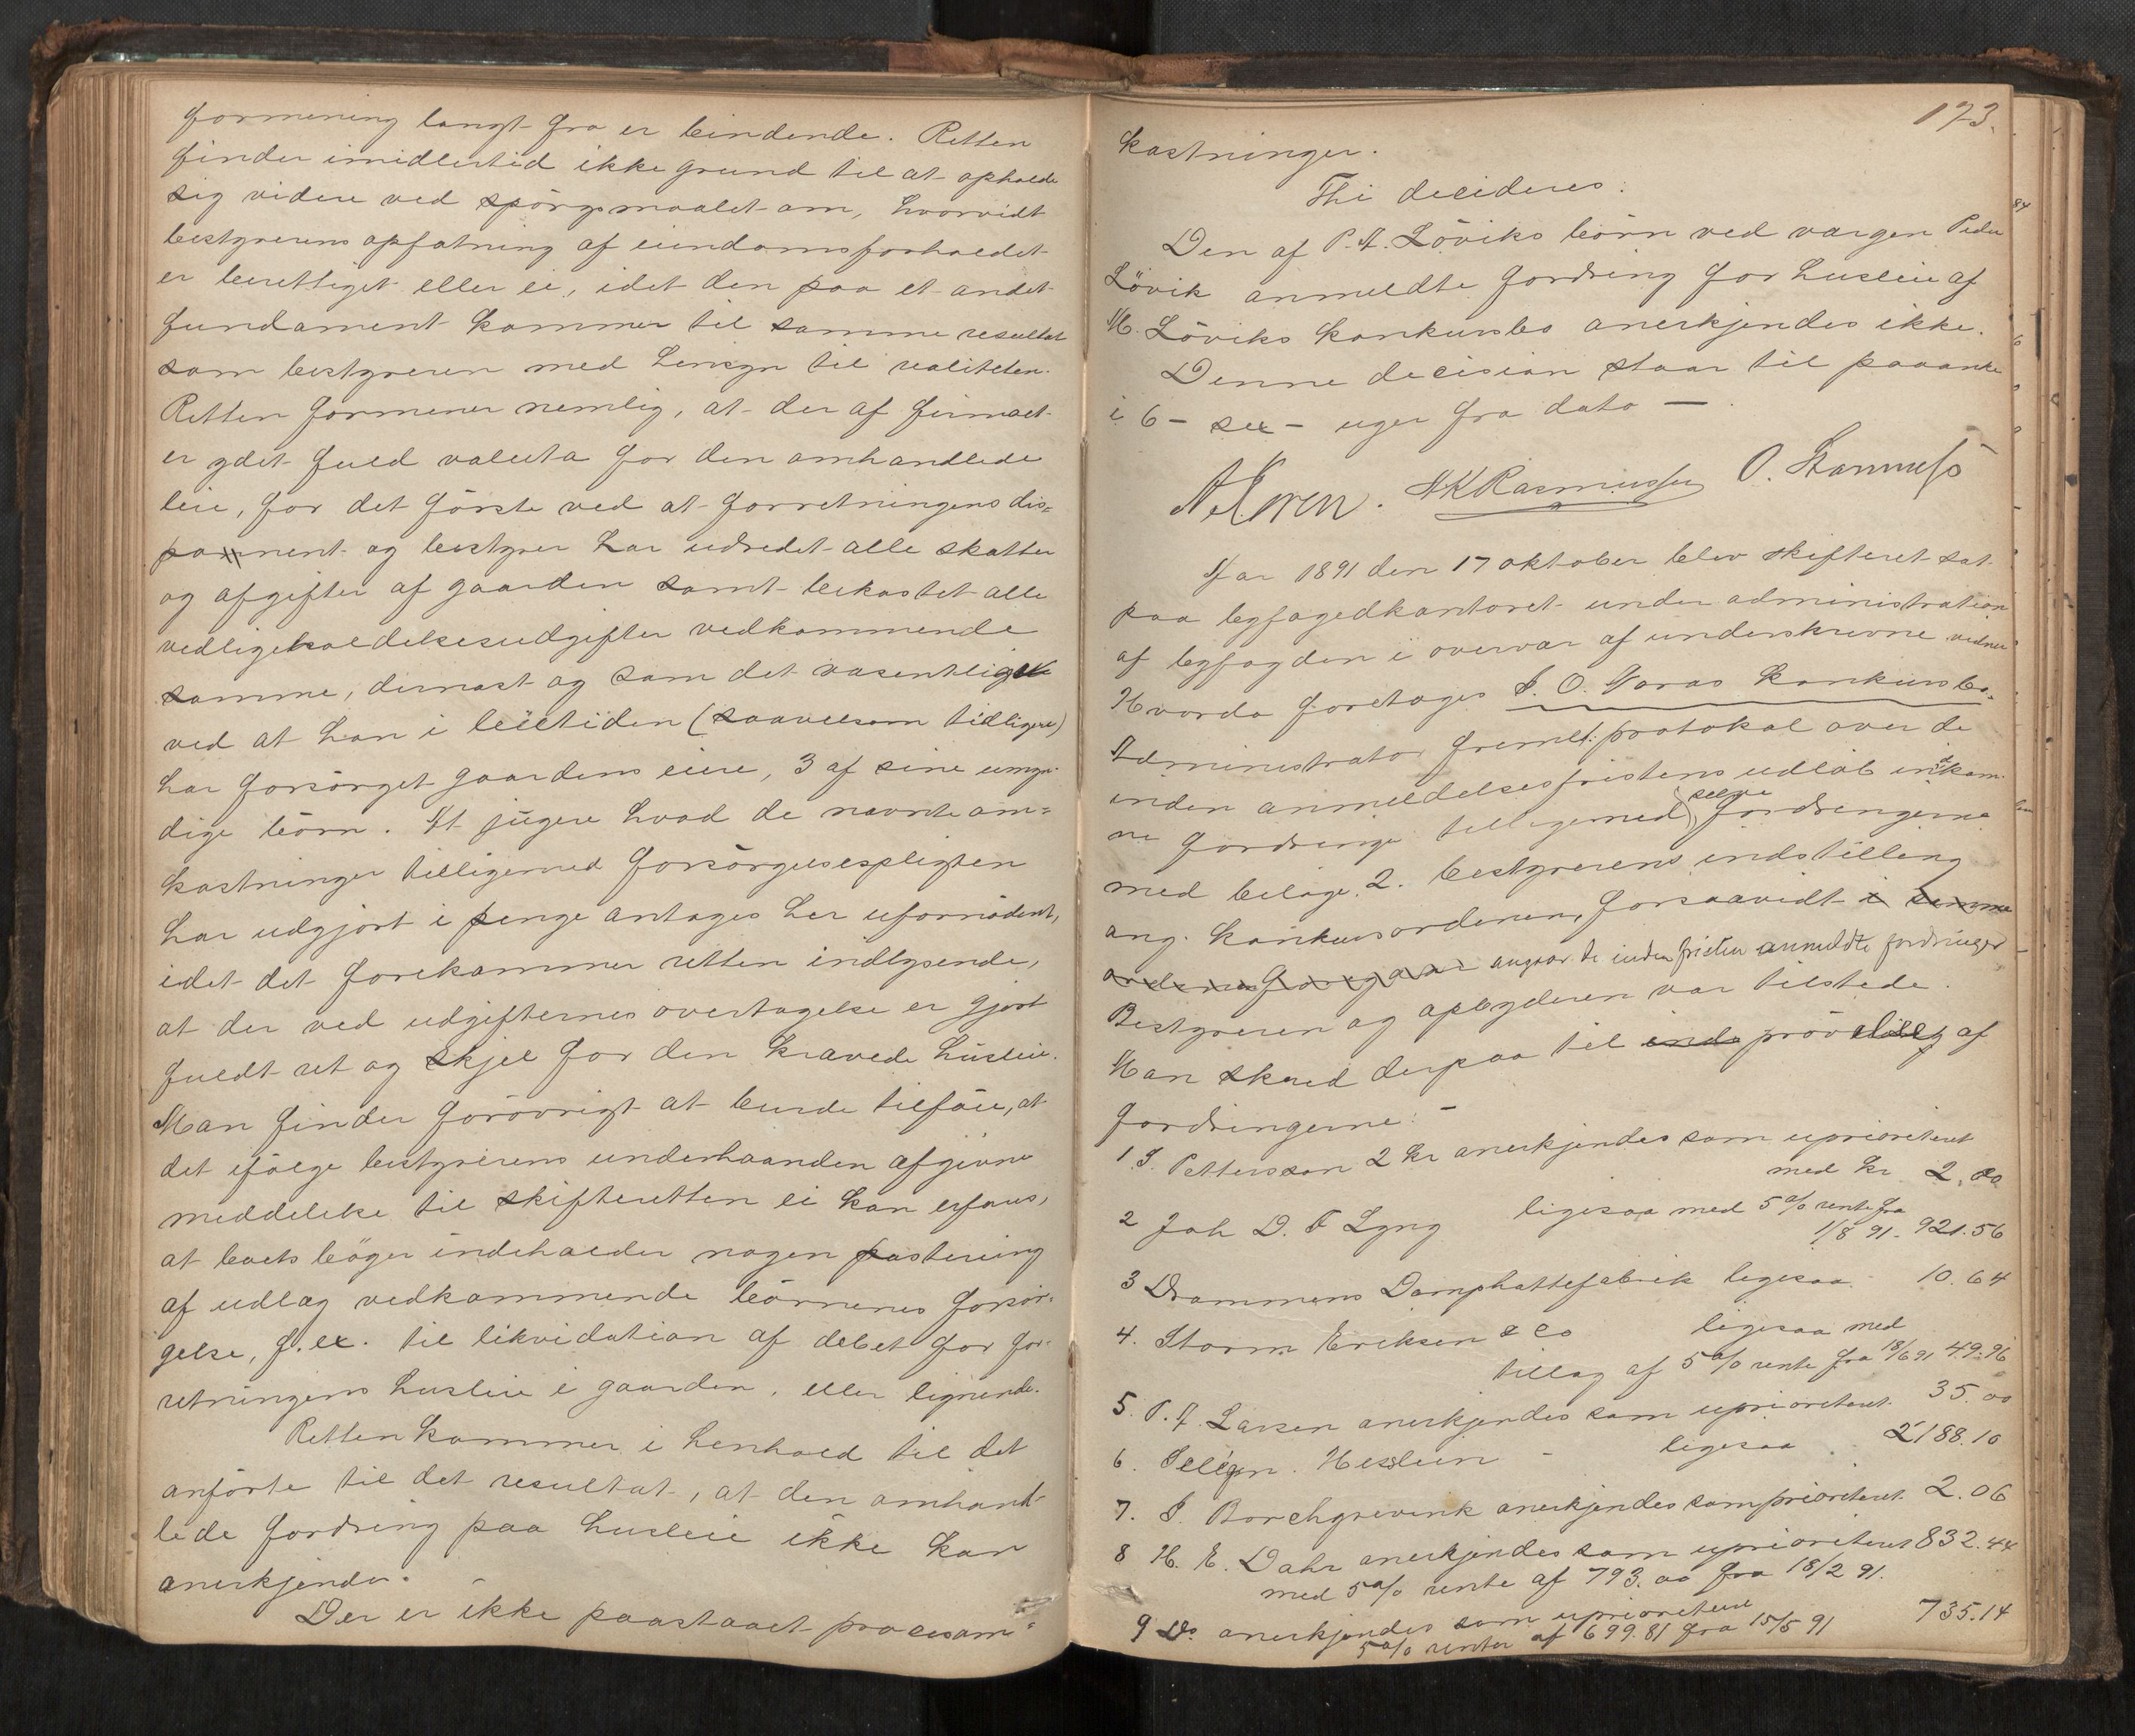 formening langt fra er bindende. Retten
finder imidlertid ikke grund til at opholde
sig videre ved spörgsmaalet om, hvorvidt
bestyrerens opfatning af eiendomsforholdet
er berettiget eller ei, idet den paa et andet
fundament kommer til samme resultat
som bestyreren med hensyn til realiteten.
Retten formener nemlig, at der af firmaet
er ydet fuld valuta for den omhandlede
leie, for det förste ved at forretningens dis=
ponent og bestyrer har udredet alle skatter
og afgifter af gaarden samt bekostet alle
vedligeholdelsesudgifter vedkommende
samme, dernæst og som det væsentligste
ved at han i leietiden (saavelsom tidligere)
har forsörget gaardens eiere, 3 af sine umyn-
dige börn. At jugere hvad de nævnte om=
kostninger tilligemed forsörgelsespligten
har udgjort i penge antages her ufornödent,
idet det forekommer retten indlysende,
at der ved udgifternes overtagelse er gjort
fuldt ret og skjel for den krævede husleie.
Man finder forövrigt at burde tilföie, at
det ifölge bestyrerens underhaanden afgivne
meddelelse til skifteretten ei kan erfares,
at boets böger indeholder nogen postering
af udlæg vedkommende börnenes forsör-
gelse, f. ex. til likvidation af debet for for-
retningens husleie i gaarden, eller lignende.
Retten kommer i henhold til det
anförte til det resultat, at den omhand-
lede fordring paa husleie ikke kan
anerkjendes.
Der er ikke paastaaet procesom=
173.
kostninger.
Thi decideres:
Den af P. A. Löviks börn ved værgen Peder
Lövik anmeldte fordring for husleie af
M. Löviks konkursbo anerkjendes ikke.
Denne decision staar til paaanke
i 6 - sex - uger fra dato —
O.
Aar 1891 den 17 oktober blev skifteret sat
paa byfogedkontoret under administration
af byfogden i overvær af underskrevne vidner
Hvorda foretoges O. konkursbo.
Administrator fremel: protokol over de
inden anmeldelsesfristens udlöb indkom-
ne fordringer tilligemed selve fordringerne
med bilage. 2. bestyrerens indstilling
ang. konkursordenen, forsaavidt i samme
angaar de inden fristen anmeldte fordringer
Bestyreren og opbyderen var tilstede.
Man skred derpaa til prövelse af
fordringerne:
1. S. Pettersson 2 kr anerkjendes som uprioriteret
med kr 2,00
2 Joh D. F Lyng ligesaa med 5 % rente fra
1/8 91. 921.56
3 Drammens Damphattefabrik ligesaa 10.64
4. Storm Eriksen & co ligesaa med
tillæg af 5 % rente fra 18/6 91 49.96
5. P. A. Larsen anerkjendes som uprioriteret 35.00
6. Hesslein - ligesaa 2188.10
7. Borchgrevink anerkjendes som prioriteret 2.06
8 H. E. Dahr anerkjendes som uprioriteret 832.44
med 5 % rente af 793.00 fra 18/2 91.
9 Do. anerkjendes som uprioriteret 735.14
5 % renter af 699.81 fra 15/5 91